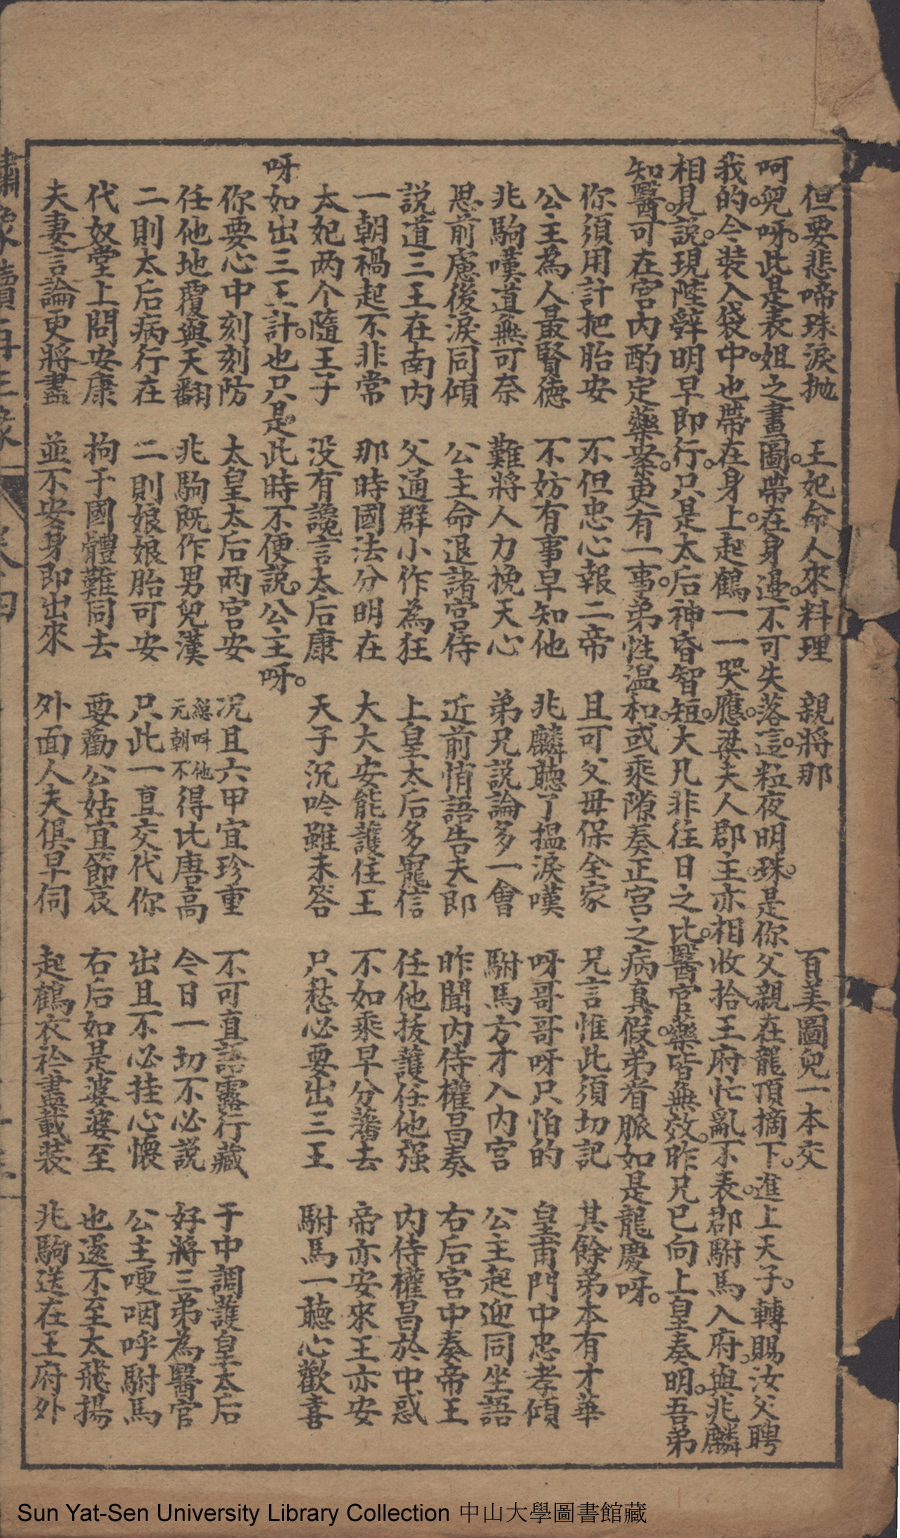 但要悲啼珠淚抛　王妃命人來料理　親將那　百美圖兒一本交
呵兒呀。此是表姐之畫圖。帶在身邊。不可失落。這粒夜明珠。是你父親在龍頂摘下。進上天子。轉賜汝父聘
我的。今裝入袋中。也帶在身上。起鶴一一哭應。梁夫人郡主亦相收拾。王府忙亂不表。郡駙馬入府。與兆麟
相見。說。現陸辭明早即行。只是太后神昏智短。大凡非往日之比。醫官藥皆無效。昨兄已向上皇奏明。吾弟
知醫。可在宮內酌定藥案。更有一事。弟性温和。或乘隙奏正宮之病真假。弟看脈如是龍慶呀。
你須用計把胎安　不但忠心報二帝　且可父母保全家　兄言惟此須切記　其餘弟本有才華
公主為人最賢德　不妨有事早知他　兆麟聽了揾淚嘆　呀哥哥呀只怕的　皇甫門中忠孝傾
兆駒嘆道無可奈　難將人力挽天心　弟兄說論多一會　駙馬方才入內宮　公主起迎同坐語
思前慮後淚同傾　公主命退諸宮侍　近前悄語告夫郎　昨聞內侍權昌奏　右后宮中奏帝王
說道三王在南內　父通群小作為狂　上皇太后多寵信　任他拔護任他强　內侍權昌於中惑
一朝禍起不非常　那時國法分明在　大大安能護住王　不如乘早分藩去　帝亦安來王亦安
太妃两个隨王子　没有讒言太后康　天子沉吟雖未答　只愁必要出三王　駙馬一聽心歡喜
呀如出三王計。也只是此時不便說。公主呀。
你要心中刻刻防　太皇太后两宮安　况且六甲宜珍重　不可直語露行藏　于中調護皇太后
任他地覆與天翻　兆駒既作男兒漢　總叫他元朝不得比唐高　今日一切不必說　好將三弟為醫官
二則太后病行在　二則娘娘胎可安　只此一直交代你　出且不必挂心懷　公主哽咽呼駙馬
代奴堂上問安康　拘于國體難同去　要勸公姑宜節哀　右后如是婆婆至　也還不至太飛揚
夫妻言論更將盡　並不安身即出來　外面人夫俱早伺　起鶴衣衿盡載装　兆駒送在王府外
Sun Yat-Sen University Library Collection 中山大學圖書館藏